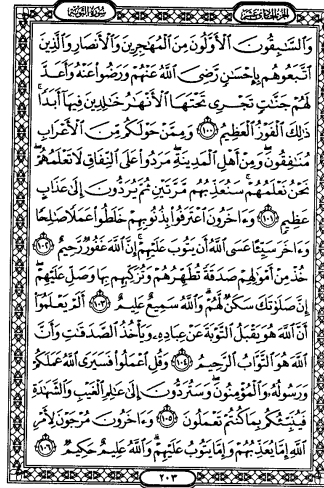 الجزء الحادي عشر
سورة التوبة
وَٱلسَّٰبِقُونَ ٱلْأَوَّلُونَ مِنَ ٱلْمُهَٰجِرِينَ وَٱلْأَنصَارِ وَٱلَّذِينَ
ٱتَّبَعُوهُم بِإِحْسَٰنٍ رَّضِىَ ٱللَّهُ عَنْهُمْ وَرَضُوا۟ عَنْهُ وَأَعَدَّ
لَهُمْ جَنَّٰتٍ تَجْرِى تَحْتَهَا ٱلْأَنْهَٰرُ خَٰلِدِينَ فِيهَآ أَبَدًا ۚ
ذَٰلِكَ ٱلْفَوْزُ ٱلْعَظِيمُ ﴿١٠٠﴾ وَمِمَّنْ حَوْلَكُم مِّنَ ٱلْأَعْرَابِ
مُنَٰفِقُونَ ۖ وَمِنْ أَهْلِ ٱلْمَدِينَةِ ۖ مَرَدُوا۟ عَلَى ٱلنِّفَاقِ لَا تَعْلَمُهُمْ ۖ
نَحْنُ نَعْلَمُهُمْ ۚ سَنُعَذِّبُهُم مَّرَّتَيْنِ ثُمَّ يُرَدُّونَ إِلَىٰ عَذَابٍ
عَظِيمٍ ﴿١٠١﴾ وَءَاخَرُونَ ٱعْتَرَفُوا۟ بِذُنُوبِهِمْ خَلَطُوا۟ عَمَلًا صَٰلِحًا
وَءَاخَرَ سَيِّئًا عَسَى ٱللَّهُ أَن يَتُوبَ عَلَيْهِمْ ۚ إِنَّ ٱللَّهَ غَفُورٌ رَّحِيمٌ ﴿١٠٢﴾
خُذْ مِنْ أَمْوَٰلِهِمْ صَدَقَةً تُطَهِّرُهُمْ وَتُزَكِّيهِم بِهَا وَصَلِّ عَلَيْهِمْ ۖ
إِنَّ صَلَوٰتَكَ سَكَنٌ لَّهُمْ ۗ وَٱللَّهُ سَمِيعٌ عَلِيمٌ ﴿١٠٣﴾ أَلَمْ يَعْلَمُوٓا۟
أَنَّ ٱللَّهَ هُوَ يَقْبَلُ ٱلتَّوْبَةَ عَنْ عِبَادِهِۦ وَيَأْخُذُ ٱلصَّدَقَٰتِ وَأَنَّ
ٱللَّهَ هُوَ ٱلتَّوَّابُ ٱلرَّحِيمُ ﴿١٠٤﴾ وَقُلِ ٱعْمَلُوا۟ فَسَيَرَى ٱللَّهُ عَمَلَكُمْ
وَرَسُولُهُۥ وَٱلْمُؤْمِنُونَ ۖ وَسَتُرَدُّونَ إِلَىٰ عَٰلِمِ ٱلْغَيْبِ وَٱلشَّهَٰدَةِ
فَيُنَبِّئُكُم بِمَا كُنتُمْ تَعْمَلُونَ ﴿١٠٥﴾ وَءَاخَرُونَ مُرْجَوْنَ لِأَمْرِ
ٱللَّهِ إِمَّا يُعَذِّبُهُمْ وَإِمَّا يَتُوبُ عَلَيْهِمْ ۗ وَٱللَّهُ عَلِيمٌ حَكِيمٌ ﴿١٠٦﴾
٢٠٣